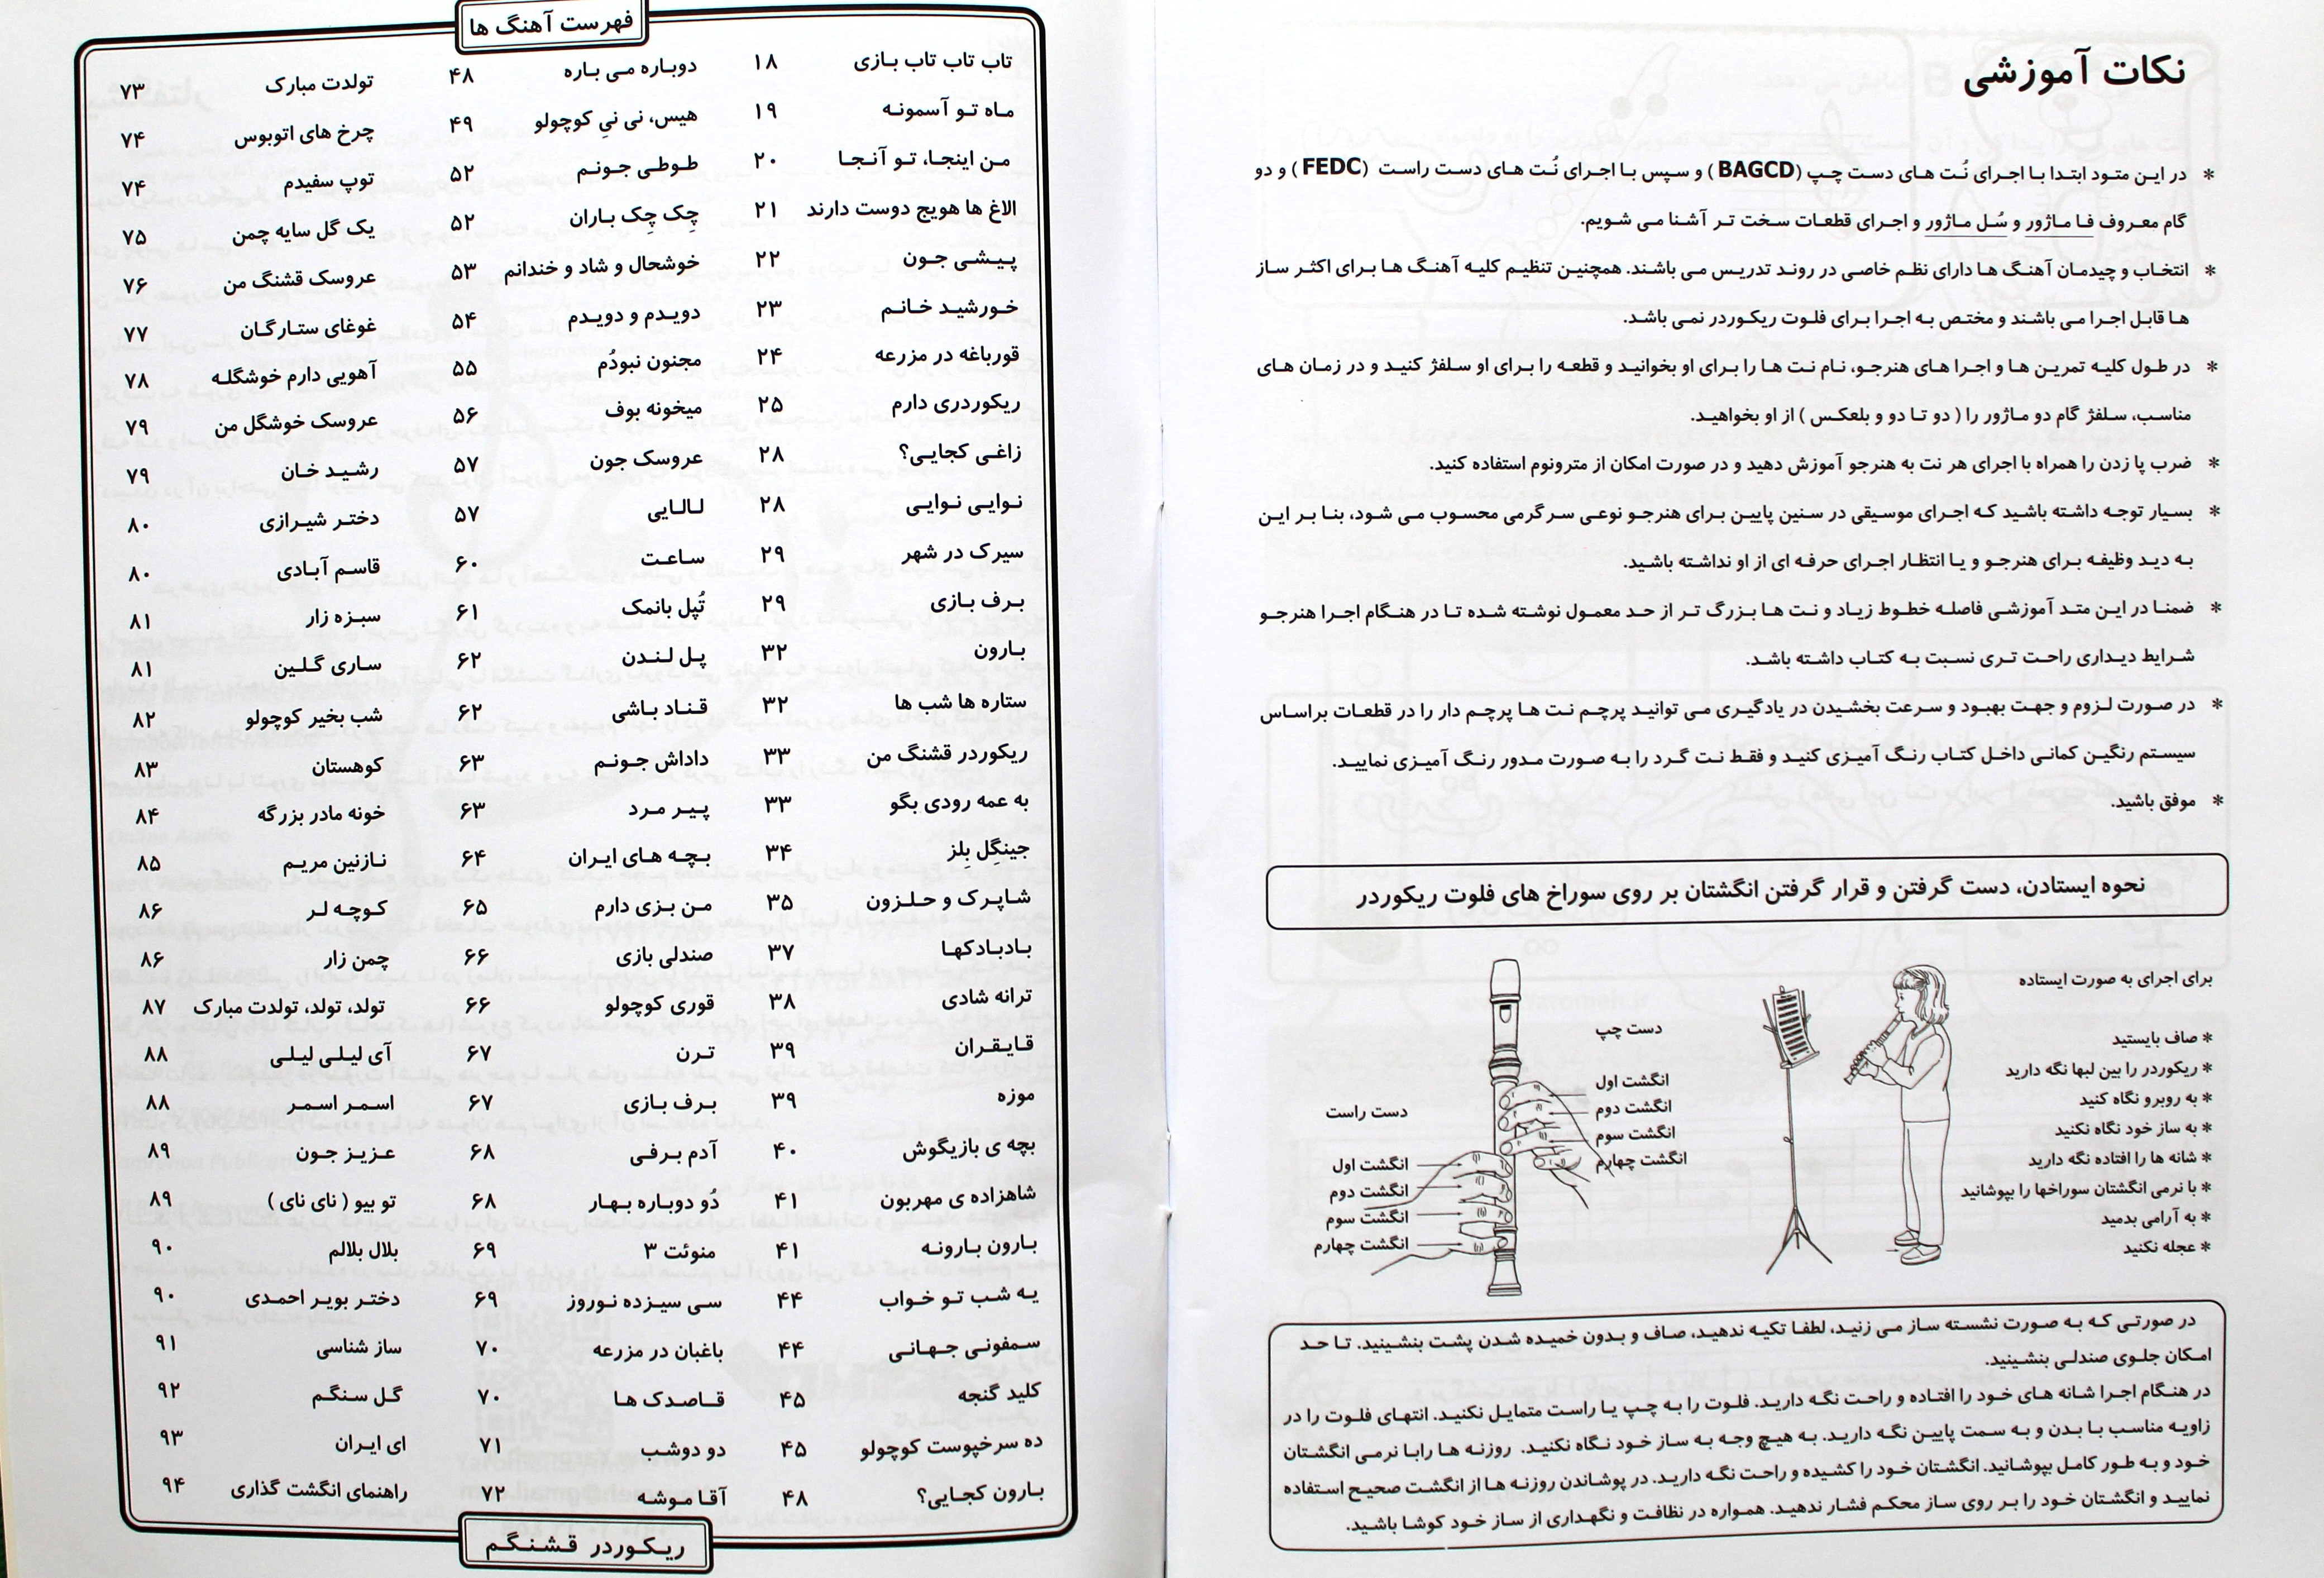 نکات آموزشی
* در این متود ابتدا با اجرای نُت های دست چپ (BAGCD) و سپس با اجرای نُت های دست راست (FEDC) و دو
گام معروف فا ماژور و سُل ماژور و اجرای قطعات سخت تر آشنا می شویم.
* انتخاب و چیدمان آهنگ ها دارای نظم خاصی در روند تدریس می باشند. همچنین تنظیم کلیه آهنگ ها برای اکثر ساز
ها قابل اجرا می باشند و مختص به اجرا برای فلوت ریکوردر نمی باشد.
* در طول کلیه تمرین ها و اجرا های هنرجو، نام نت ها را برای او بخوانید و قطعه را برای او سلفژ کنید و در زمان های
مناسب، سلفژ گام دو ماژور را ( دو تا دو و بلعکس ) از او بخواهید.
* ضرب پا زدن را همراه با اجرای هر نت به هنرجو آموزش دهید و در صورت امکان از مترونوم استفاده کنید.
* بسیار توجه داشته باشید که اجرای موسیقی در سنین پایین برای هنرجو نوعی سرگرمی محسوب می شود، بنا بر این
به دید وظیفه برای هنرجو و یا انتظار اجرای حرفه ای از او نداشته باشید.
* ضمنا در این متد آموزشی فاصله خطوط زیاد و نت ها بزرگ تر از حد معمول نوشته شده تا در هنگام اجرا هنرجو
شرایط دیداری راحت تری نسبت به کتاب داشته باشد.
* در صورت لزوم و جهت بهبود و سرعت بخشیدن در یادگیری می توانید پرچم نت ها پرچم دار را در قطعات براساس
سیستم رنگین کمانی داخل کتاب رنگ آمیزی کنید و فقط نت گرد را به صورت مدور رنگ آمیزی نمایید.
* موفق باشید.
نحوه ایستادن، دست گرفتن و قرار گرفتن انگشتان بر روی سوراخ های فلوت ریکوردر
برای اجرای به صورت ایستاده
* صاف بایستید
* ریکوردر را بین لبها نگه دارید
* به روبرو نگاه کنید
* به ساز خود نگاه نکنید
* شانه ها را افتاده نگه دارید
* با نرمی انگشتان سوراخها را بپوشانید
* به آرامی بدمید
* عجله نکنید
دست چپ
انگشت اول
انگشت دوم
انگشت سوم
انگشت چهارم
دست راست
انگشت اول
انگشت دوم
انگشت سوم
انگشت چهارم
در صورتی که به صورت نشسته ساز می زنید، لطفا تکیه ندهید، صاف و بدون خمیده شدن پشت بنشینید. تا حد
امکان جلوی صندلی بنشینید.
در هنگام اجرا شانه های خود را افتاده و راحت نگه دارید. فلوت را به چپ یا راست متمایل نکنید. انتهای فلوت را در
زاویه مناسب با بدن و به سمت پایین نگه دارید. به هیچ وجه به ساز خود نگاه نکنید. روزنه ها رابا نرمی انگشتان
خود و به طور کامل بپوشانید. انگشتان خود را کشیده و راحت نگه دارید. در پوشاندن روزنه ها از انگشت صحیح استفاده
نمایید و انگشتان خود را بر روی ساز محکم فشار ندهید. همواره در نظافت و نگهداری از ساز خود کوشا باشید.
فهرست آهنگ ها
تاب تاب تاب بازی ۱۸
ماه تو آسمونه ۱۹
من اینجا، تو آنجا ۲۰
الاغ ها هویج دوست دارند ۲۱
پیشی جون ۲۲
خورشید خانم ۲۳
قورباغه در مزرعه ۲۴
ریکوردری دارم ۲۵
زاغی کجایی؟ ۲۸
نوایی نوایی ۲۸
سیرک در شهر ۲۹
برف بازی ۲۹
بارون ۳۲
ستاره ها شب ها ۳۲
ریکوردر قشنگ من ۳۳
به عمه رودی بگو ۳۳
جینگِل بِلز ۳۴
شاپرک و حلزون ۳۵
بادبادکها ۳۷
ترانه شادی ۳۸
قایقران ۳۹
موزه ۳۹
بچه ی بازیگوش ۴۰
شاهزاده ی مهربون ۴۱
بارون بارونه ۴۱
یه شب تو خواب ۴۴
سمفونی جهانی ۴۴
کلید گنجه ۴۵
ده سرخپوست کوچولو ۴۵
بارون کجایی؟ ۴۸
دوباره می باره ۴۸
هیس، نی نیِ کوچولو ۴۹
طوطی جونم ۵۲
چِک چِک باران ۵۲
خوشحال و شاد و خندانم ۵۳
دویدم و دویدم ۵۴
مجنون نبودُم ۵۵
میخونه بوف ۵۶
عروسک جون ۵۷
لالایی ۵۷
ساعت ۶۰
تُپل بانمک ۶۱
پل لندن ۶۲
قناد باشی ۶۲
داداش جونم ۶۳
پیر مرد ۶۳
بچه های ایران ۶۴
من بزی دارم ۶۵
صندلی بازی ۶۶
قوری کوچولو ۶۶
ترن ۶۷
برف بازی ۶۷
آدم برفی ۶۸
دُو دوباره بهار ۶۸
منوئت ۳ ۶۹
سی سیزده نوروز ۶۹
باغبان در مزرعه ۷۰
قاصدک ها ۷۰
دو دوشب ۷۱
آقا موشه ۷۲
تولدت مبارک ۷۳
چرخ های اتوبوس ۷۴
توپ سفیدم ۷۴
یک گل سایه چمن ۷۵
عروسک قشنگ من ۷۶
غوغای ستارگان ۷۷
آهویی دارم خوشگله ۷۸
عروسک خوشگل من ۷۹
رشید خان ۷۹
دختر شیرازی ۸۰
قاسم آبادی ۸۰
سبزه زار ۸۱
ساری گلین ۸۱
شب بخیر کوچولو ۸۲
کوهستان ۸۳
خونه مادر بزرگه ۸۴
نازنین مریم ۸۵
کوچه لر ۸۶
چمن زار ۸۶
تولد، تولد، تولدت مبارک ۸۷
آی لیلی لیلی ۸۸
اسمر اسمر ۸۸
عزیز جون ۸۹
تو بیو ( نای نای ) ۸۹
بلال بلالم ۹۰
دختر بویر احمدی ۹۰
ساز شناسی ۹۱
گل سنگم ۹۲
ای ایران ۹۳
راهنمای انگشت گذاری ۹۴
ریکوردر قشنگم